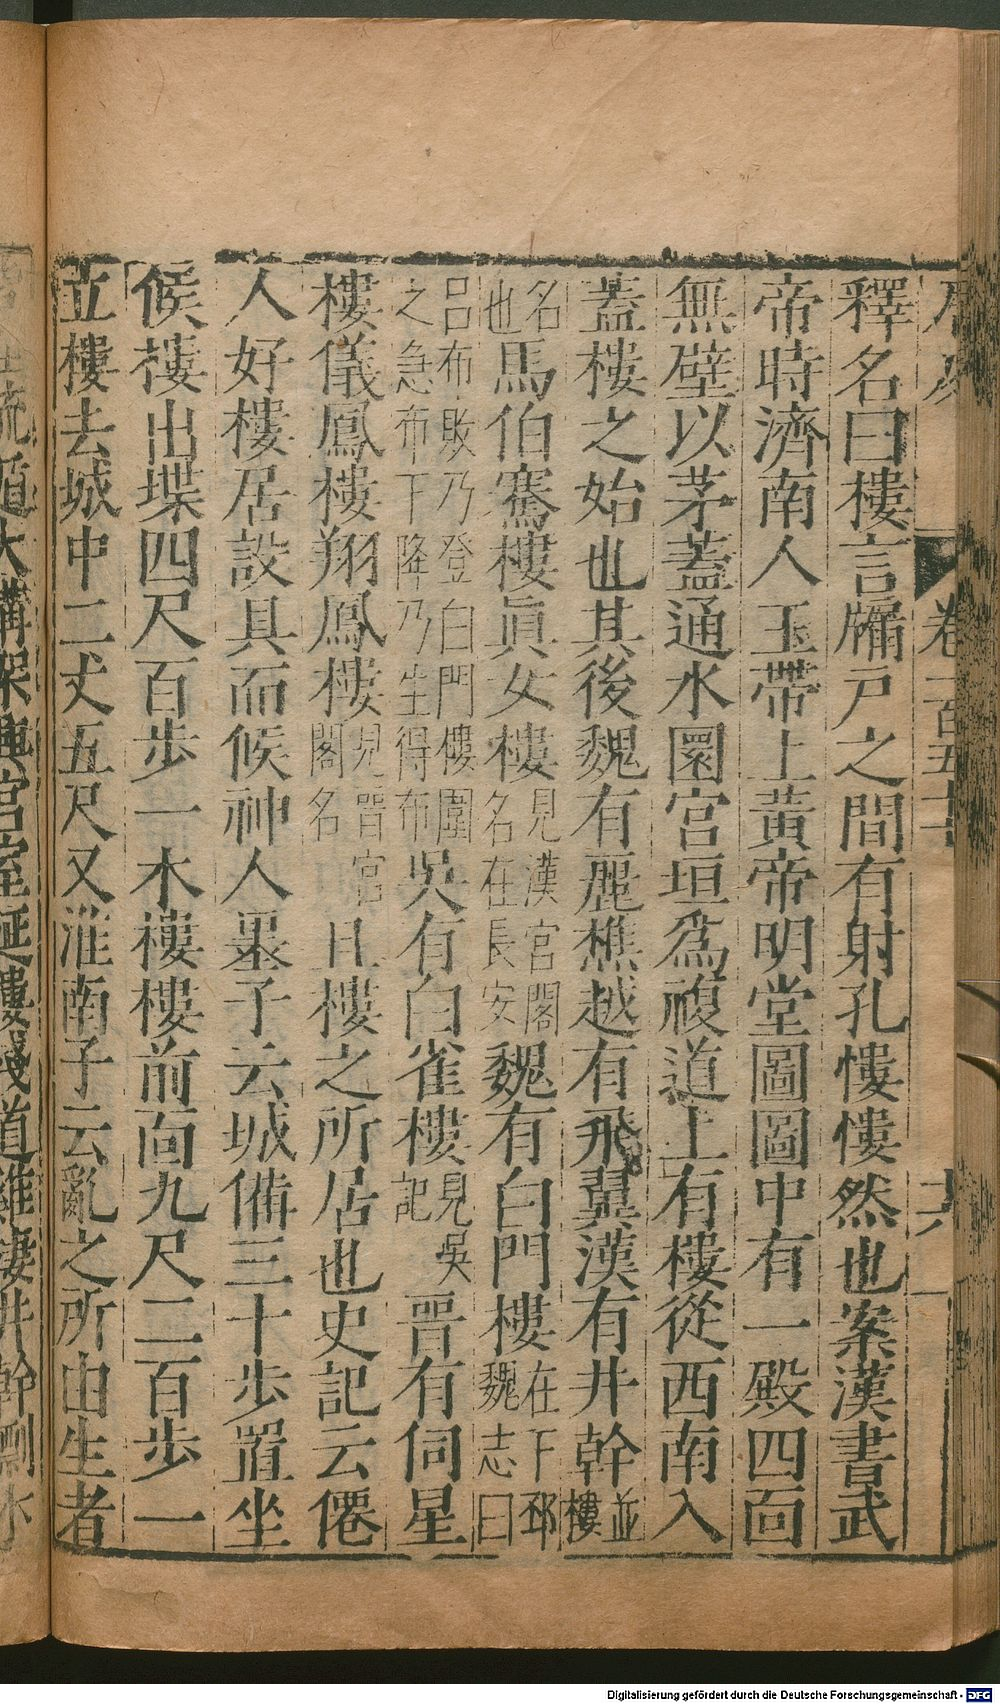 卷二百五十
十六
釋名曰樓言牖戸之間有射孔慺慺然也案漢書武
帝時濟南人玉帶上黃帝明堂圖圖中有一殿四面
無壁以茅蓋通水圜宮垣爲複道上有樓從西南入
蓋樓之始也其後魏有麗樵越有飛翼漢有井幹並樓
名也馬伯騫樓眞女樓見漢宮閣名在長安魏有白門樓在下邳魏志曰
呂布敗乃登白門樓圍之急布下降乃生得布吳有白雀樓見吳記晉有伺星
樓儀鳳樓翔鳳樓見晉宮閣名且樓之所居也史記云僊
人好樓居設具而候神人墨子云城備三十步置坐
候樓出堞四尺百步一木樓樓前面九尺二百步一
立樓去城中二丈五尺又淮南子云亂之所由生者
流遁大構架興宮室延樓棧道雞棲井幹剽木
Digitalisierung gefördert durch die Deutsche Forschungsgemeinschaft - DFG